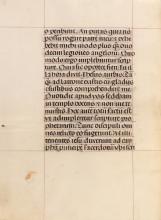 o peribunt. An putas quia nō
possū rogare patrē meū: et exhi
bebit michi modo plus q̄ duo
decim legiones angelorū. Quo
modo ergo implebuntur scrip
ture. Quia sic oportet fieri. In il
la hora dixit Ihesus turbis. Tā
q̄ ad latronē existis cū gladiis et
fustibus comprehendere me.
Quotidie apud vos sedebam
in templo docens: et non me te
nuistis. Hoc autē totum factū
est ut adimplerentur scripture pro
phetarum. Tunc discipuli om
nes relicto eo fugerunt. At illi
tenentes iesū duxerunt ad cay
phā principē sacerdotū ubi scri